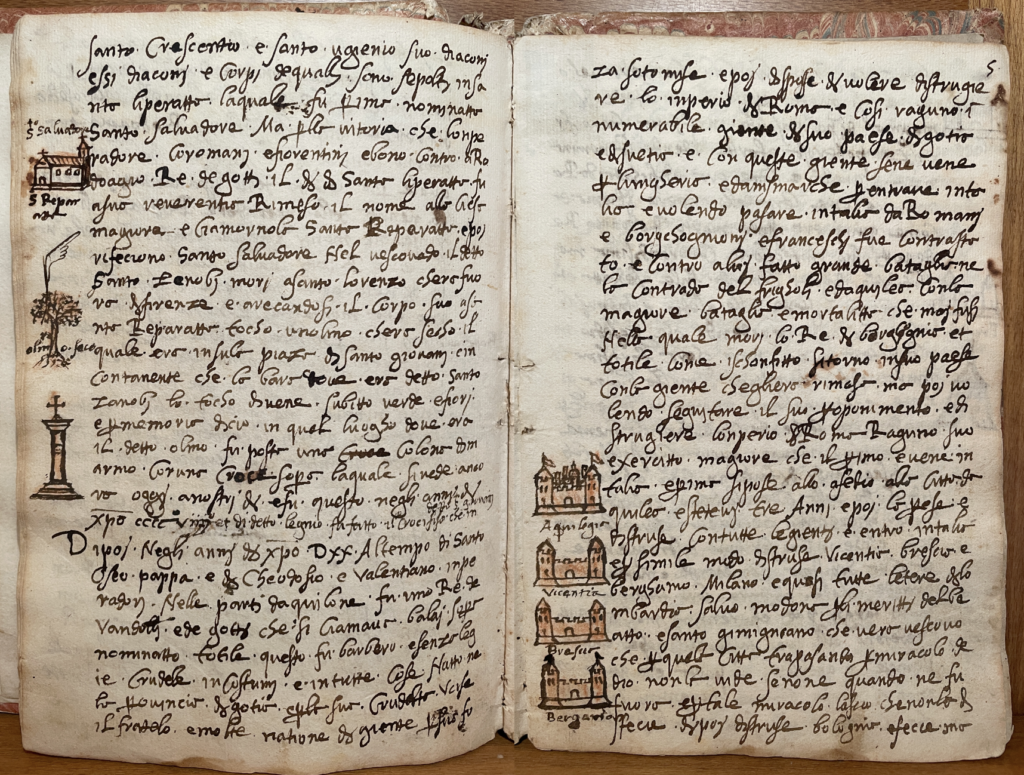 santo · Crescentio · e santo · ugienio suo diaconi
essi diaconj · e Corpi de qualj sono sepoltj in sa
nta liperatta laquale · fu prima nominatta
Santo · Salvadore · Ma perla vitoria · che lonpe
radore · Coromanj · e fiorentinj ebono · Contro · a Ro
doagio · Re · de gottj il · dj dj Santa liperatta · fu
a sua reverentia Rimeso · il nome alla Giesa
magiore · e Ciamornola Santa Reperatta · epoj
rifeciono · Santo · salvadore Nel vescovado · il detto
Santo · Zenobj · morj asanto · lorenzo chera fuo
ra · dj firenze · e arecandosj · il · Corpo · suo asa
nta Reparatta · tocho · unolmo · chera secho · il
quale · era · insula piaza dj santo giovanj · cin
contanente che · la bara dove · era detto · santo
zanobj lo · tocho divene · subitto verde · e fiorj ·
e per memoria dicio · in quel luogho dove · era
il · detto · olmo · fu posta una Colona dim
armo · Coruna Croce sopra laquale sivede · anco
ra oggi · anostrj dj · e fu · questo · neglj annj dj
xpo cccc et di detto legnio fu fatto il Crocifiso che in
Dipoj · Neglj annj dj xpo DXX · Altempo di Santo
Oseo · pappa · e dj Theodosio · e Valentiano · inpe
radorj · Nelle partj daquilone · fu · uno Re · de
Vandalj · ede gottj che · si Ciamava · balaj sopra
nominatto · totile · questo · fu · barbero · esenza leg
ie Crudele in Costumj · e · intutte · Cose Natto ne
la provincia · dj gotia · e perla sua · Crudelta Verso
il fratelo · e molte natione dj giente
S Salvadore
S Repar
ata
olmo · seco
5
za · sotomise · epoj · dispose di volere distrugie
re · lo inperio · dj Roma · e Cosi raguno · i
numerabile · giente · dj suo paese dj gotia
edi suetia · e · Con questa giente · sene vene
per lungheria · edanismarche · per entrare inta
lia e volendo pasare · intalia da Romanj
e borgchognionj · e francesChj fue Contrasta
to · e Contro aluj fatto grande · bataglia · ne
la Contrada · del frigholj · edaquilea Conla
magiore · bataglia e mortalitta che maj fusi
Nela quale morj · lo Re · dj borghognia et
totile Come · isconfitto · sitorno insuo paese
Conla giente chegliera · rimasa · ma poj vo
lendo seguitare · il suo · proponimento · edi
strugiere lonperio dj Roma Raguno suo
exercitto · magiore che · il primo · e vene in
talia · e prima si pose allo asedio alla Citta da
quilea · estetevj tre Annj epoj la prese · e
distruse Contutte legientj · e · entro · intalia
e per simile modo distruse Vicentia bresca e
bergamo · Milano · e quasi tutte · letere dj lo
mbardia · salvo · modona per merittj del be
atto · esanto gimigniano · che vera vescovo
che per quela Citta trapasando per miracolo di
dio · non la vide senone quando · ne fu
fuora · e per tale miracolo lascio che nonle dj
sfecie · dipoj distruse · bologna · efecie ma
Aquilegia
Vicentia
Bresca
Bergamo